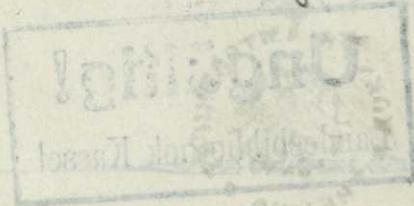 Ungültig!
Landesbibliothek Kassel